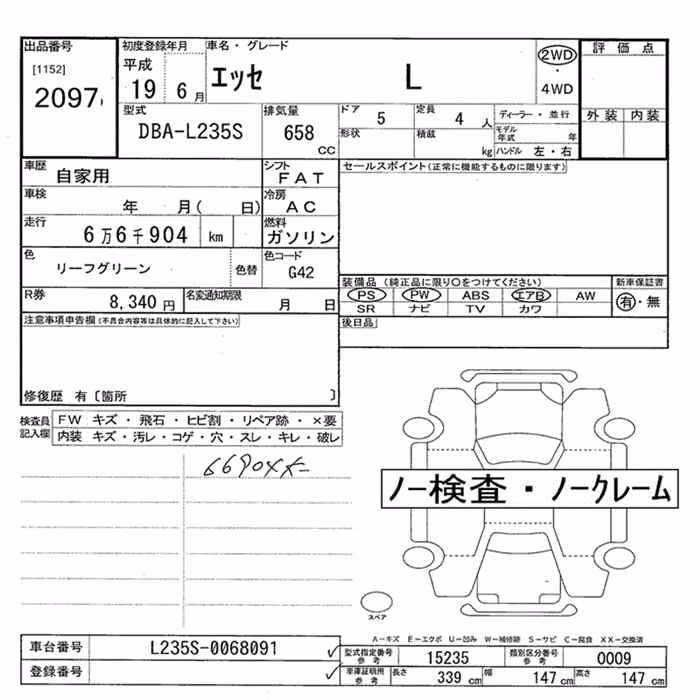 出品番号 初度登録年月 車名・グレード 評価点
[1152] 平成 2WD
2097 19 6月 エッセ L ・
4WD
型式 排気量 ドア 5 定員 4人 ディーラー・並行 外装 内装
DBA-L235S 658 cc 形状 積載 kg モデル年式 年
ハンドル 左・右
車歴 自家用 シフト FAT セールスポイント(正常に機能するものに限ります)
車検 年 月( 日) 冷房 AC
走行 6万6千904 km 燃料 ガソリン
色 リーフグリーン 色替 色コード G42
装備品 (純正品に限り○をつけてください) 新車保証書
R券 8,340円 名変通知期限 月 日 PS PW ABS エアB AW 有・無
SR ナビ TV カワ
注意事項申告欄(不具合内容等は具体的に記入して下さい) 後日品
修復歴 有〔箇所 〕
検査員記入欄 FW キズ・飛石・ヒビ割・リペア跡・×要
内装 キズ・汚レ・コゲ・穴・スレ・キレ・破レ
ノー検査・ノークレーム
スペア
A-キズ E-エクボ U-凹み W-補修跡 S-サビ C-腐食 XX-交換済
車台番号 L235S-0068091 型式指定番号参考 15235 類別区分番号参考 0009
登録番号 車庫証明用参考 長さ 339cm 幅 147cm 高さ 147cm